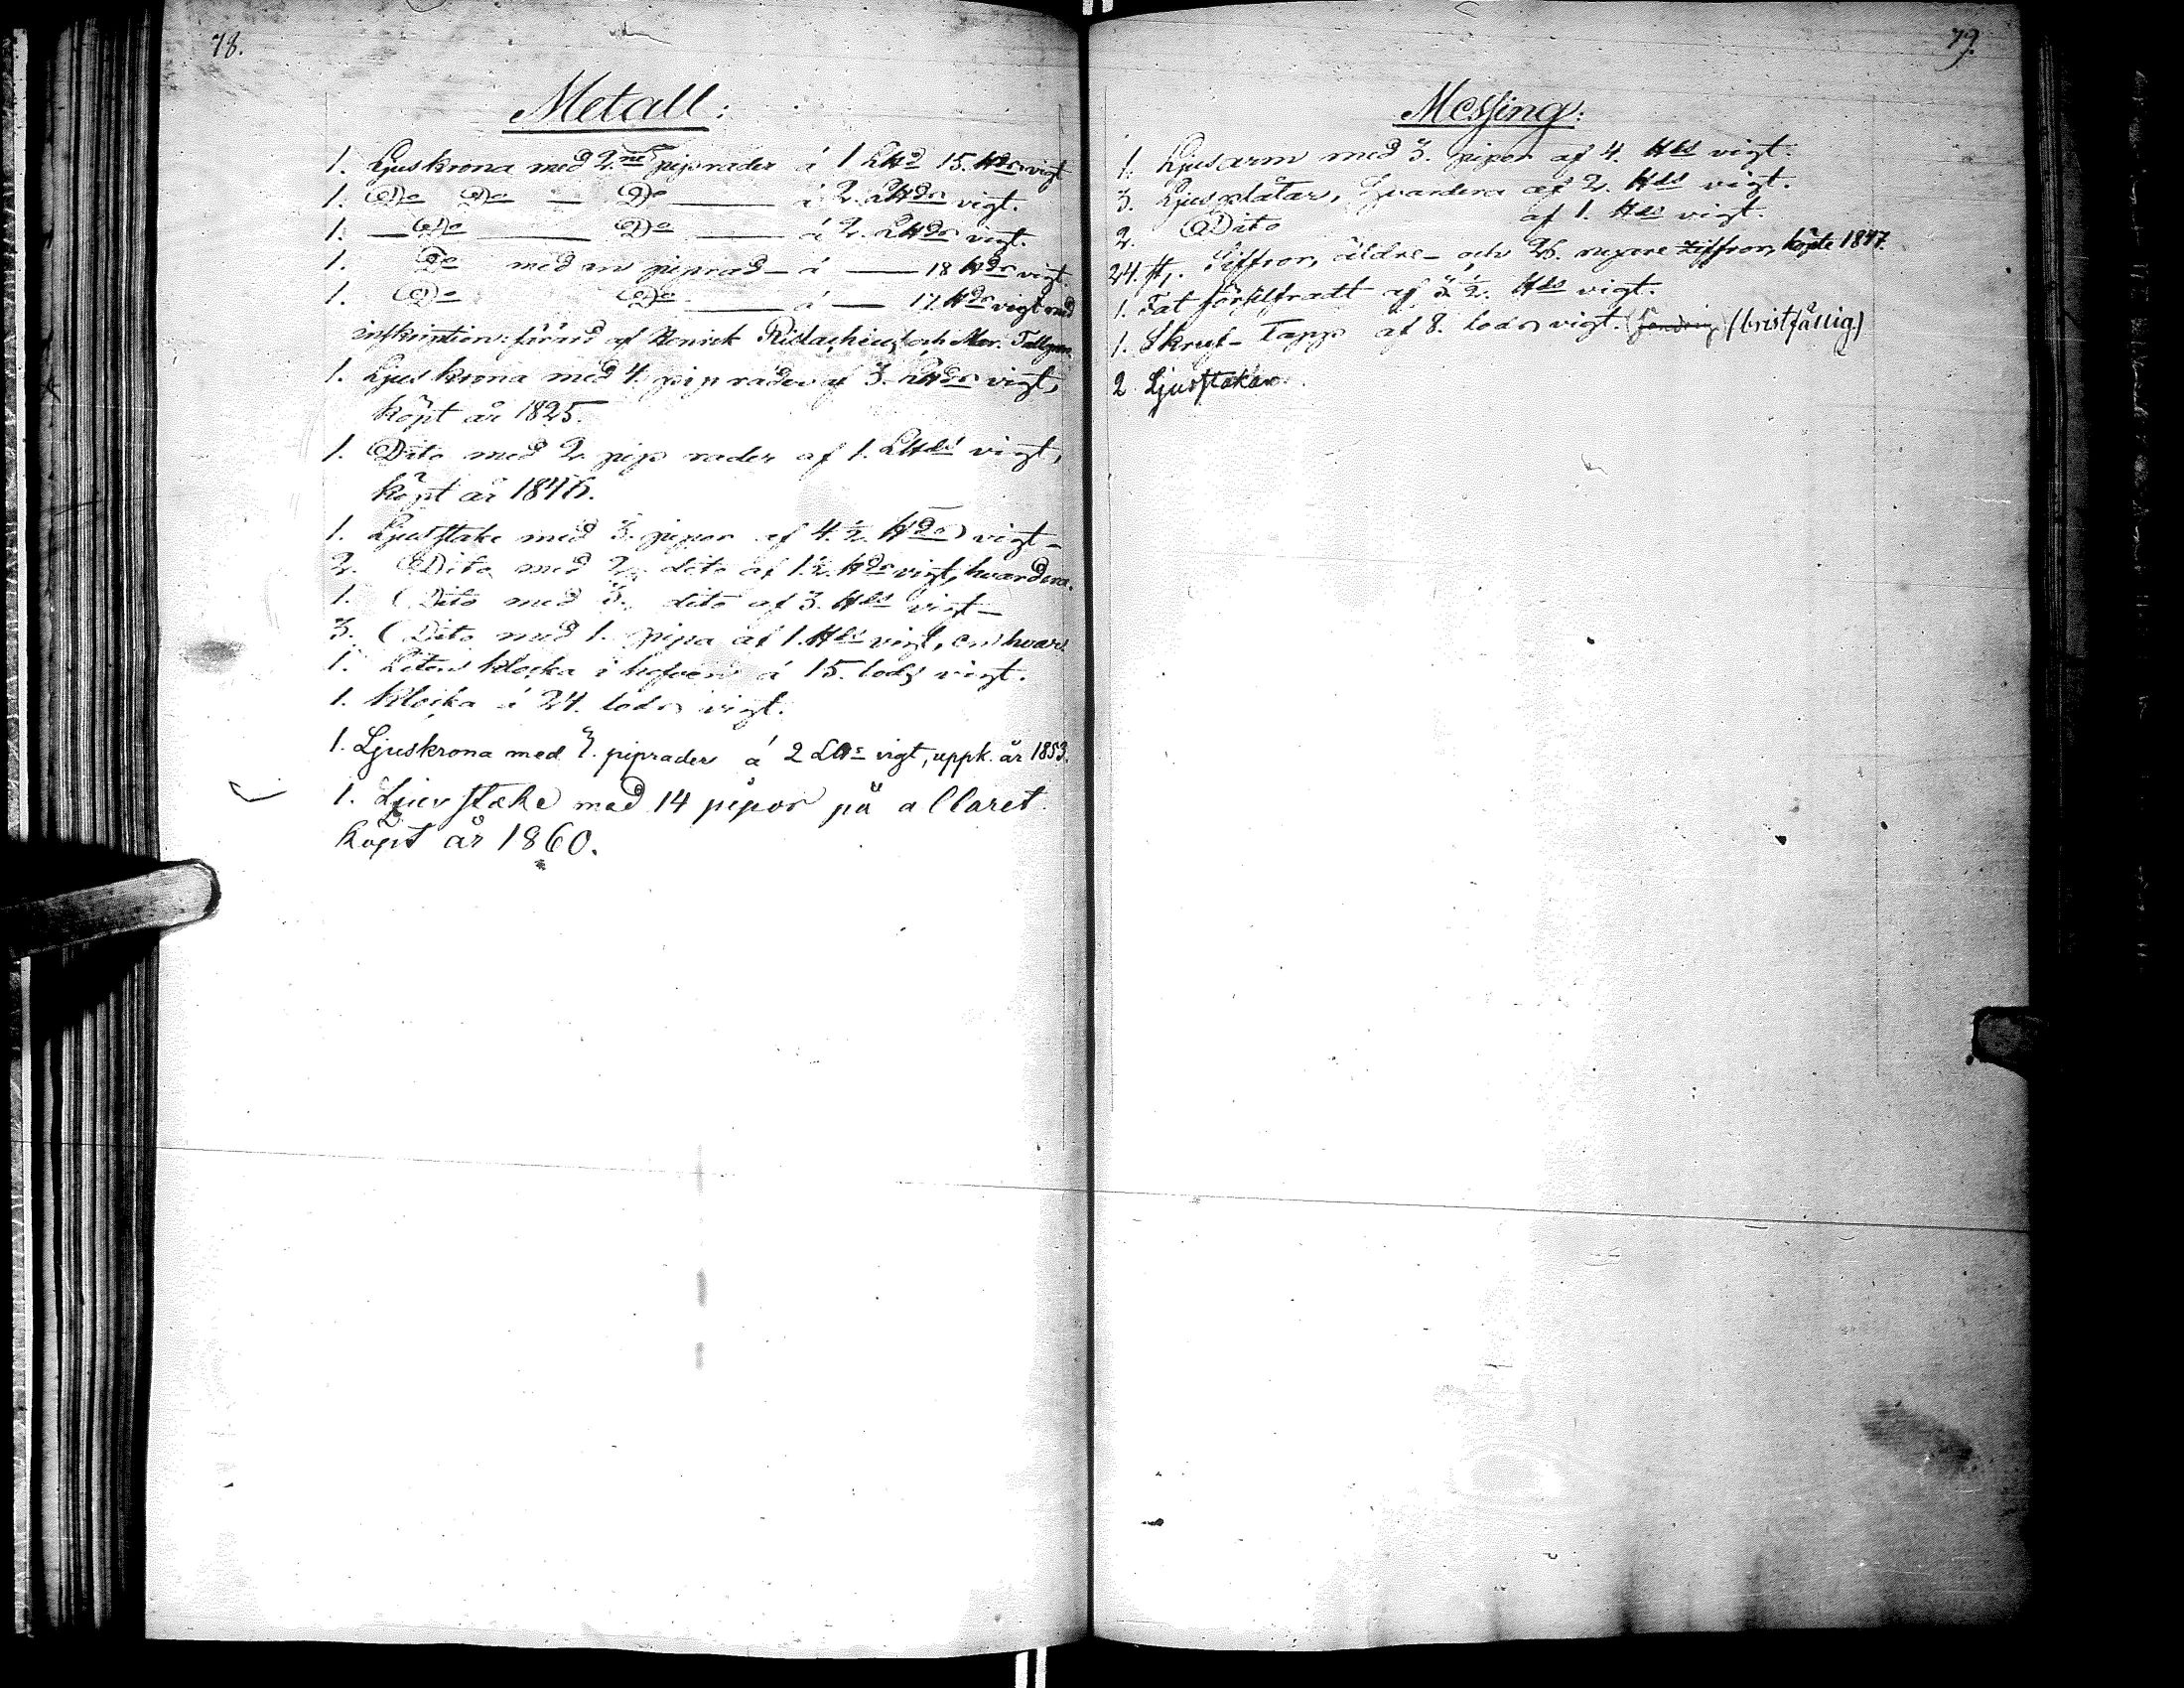 78.
Metall:
1. Ljuskrona med 2.ne piprader á 1 L℔d 15. ℔ds vigt
1. Do Do — Do — á 2. L℔ds vigt.
1. — Do — Do — á 2. L℔ds vigt.
1. Do med en piprad — á — 18 ℔ds vigt.
1. Do Do — á — 17 ℔ds vigt med
inskription: förärd af Henrick Ristachius och Mar. Tallgren.
1. Ljuskrona med 4. piprader af 3. L℔ds vigt,
köpt år 1825.
1. Dito med 2. pip rader af 1. L℔ds vigt,
köpt år 1846.
1. Ljusstake med 3. pipor af 4. ½. ℔ds vigt —
2. Dito med 2. dito af 1.½. ℔ds vigt, hvardera.
1. Dito med 3. dito af 3. ℔ds vigt —
3. Dito med 1. pipa af 1. ℔ds vigt, en hvar
1. Liten klocka i hofven á 15. lods vigt.
1. Klocka á 24. lods vigt.
1. Ljuskrona med 3. piprader á 2 L℔s vigt, uppk. år 1853.
1. Ljusstake med 14 pipor på altaret
köpt år 1860.
79.
Messing:
1. Ljusarm med 3. pipor af 4. ℔ds vigt.
3. Ljusplåtar, hvardera af 2. ℔ds vigt.
2. Dito af 1. ℔ds vigt.
24. st. Siffror, äldre — och 26. nyare ziffror, köpte 1847.
1. Fat förselfradt af 3.½. ℔ds vigt.
1. Skruf-Tapp af 8. lods vigt. (bristfällig)
2. Ljusstakar.